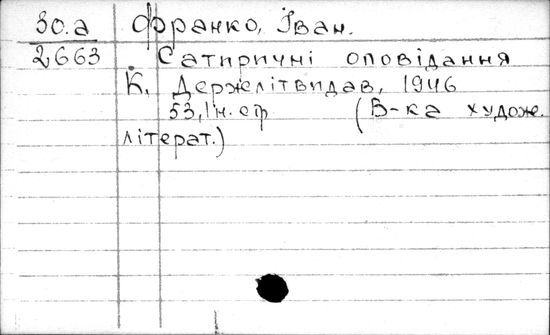 30.а Франко, Іван.
2663 Сатиричні оповідання
К. Держлітвидав, 1946
53, Ін. стр (Б-ка худож.
літерат.)